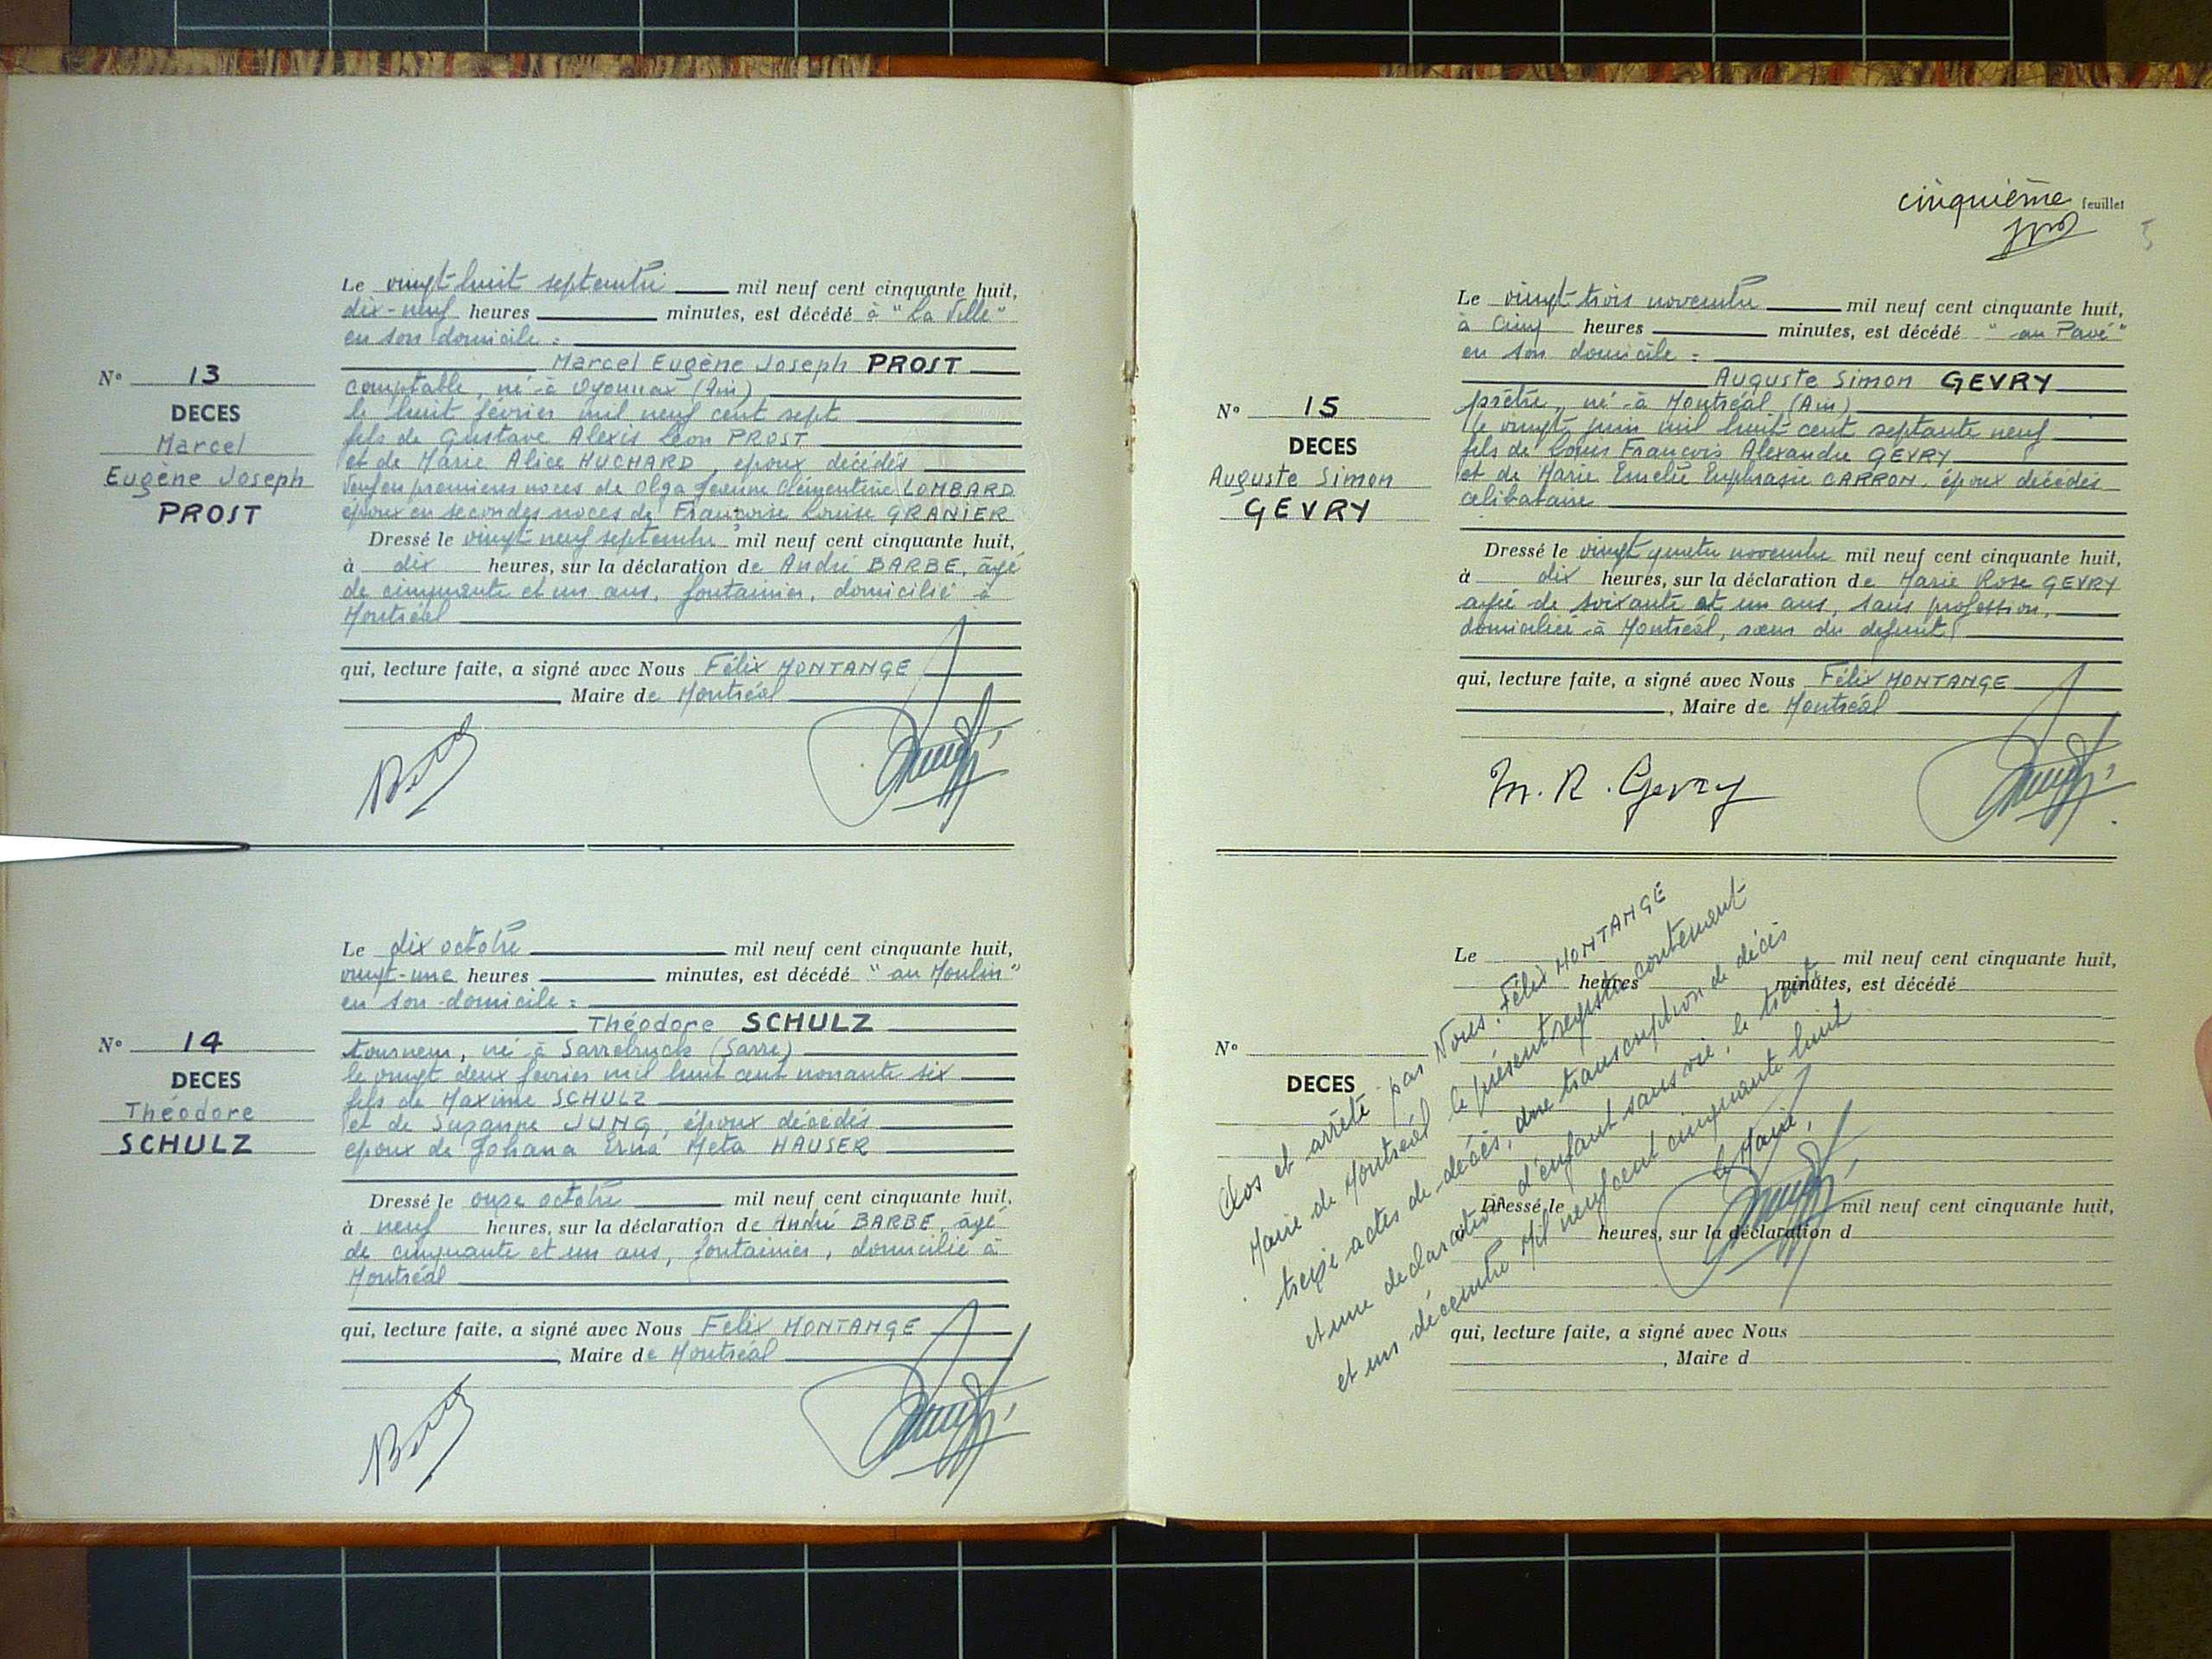 Le vingt-huit septembre mil neuf cent cinquante huit,
dix-neuf heures minutes, est décédé à "La Ville"
en son domicile :
Marcel Eugène Joseph PROST
comptable, né à Oyonnax (Ain)
le huit février mil neuf cent sept
fils de Gustave Alexis Léon PROST
et de Marie Alice HUCHARD, époux décédés
veuf en premières noces de Olga Jeanne Clémentine LOMBARD
époux en secondes noces de Françoise Louise GRANIER
Dressé le vingt neuf septembre mil neuf cent cinquante huit,
à dix heures, sur la déclaration de André BARBE, âgé
de cinquante et un ans, fontainier, domicilié à
Montréal
qui, lecture faite, a signé avec Nous Félix MONTANGE
Maire de Montréal
N° 13
DECES
Marcel
Eugène Joseph
PROST
Le dix octobre mil neuf cent cinquante huit,
vingt-une heures minutes, est décédé "au Moulin"
en son domicile :
Théodore SCHULZ
tourneur, né à Sarrebruck (Sarre)
le vingt deux février mil huit cent nonante six
fils de Maxime SCHULZ
et de Suzanne JUNG, époux décédés
époux de Johana Erna Meta HAUSER
Dressé le onze octobre mil neuf cent cinquante huit,
à neuf heures, sur la déclaration de André BARBE, âgé
de cinquante et un ans, fontainier, domicilié à
Montréal
qui, lecture faite, a signé avec Nous Félix MONTANGE
, Maire de Montréal
N° 14
DECES
Théodore
SCHULZ
cinquième feuillet
5
Le vingt-trois novembre mil neuf cent cinquante huit,
à cinq heures minutes, est décédé "au Pavé"
en son domicile :
Auguste Simon GEVRY
prêtre, né à Montréal (Ain)
le vingt juin mil huit cent septante neuf
fils de Louis François Alexandre GEVRY
et de Marie Emelie Euphrasie CARRON, époux décédés
célibataire
Dressé le vingt quatre novembre mil neuf cent cinquante huit,
à dix heures, sur la déclaration de Marie Rose GEVRY
agée de soixante et un ans, sans profession,
domiciliée à Montréal, sœur du défunt
qui, lecture faite, a signé avec Nous Félix MONTANGE
, Maire de Montréal
M. R. Gevry
N° 15
DECES
Auguste Simon
GEVRY
Le mil neuf cent cinquante huit,
heures minutes, est décédé
N°
DECES
Dressé le mil neuf cent cinquante huit,
heures, sur la déclaration d
qui, lecture faite, a signé avec Nous
, Maire d
Clos et arrêté par Nous, Félix MONTANGE
Maire de Montréal le présent registre contenant
treize actes de décès, une transcription de décès
et une declaration d'enfant sans vie, le trente
et un décembre mil neuf cent cinquante huit
Le Maire,